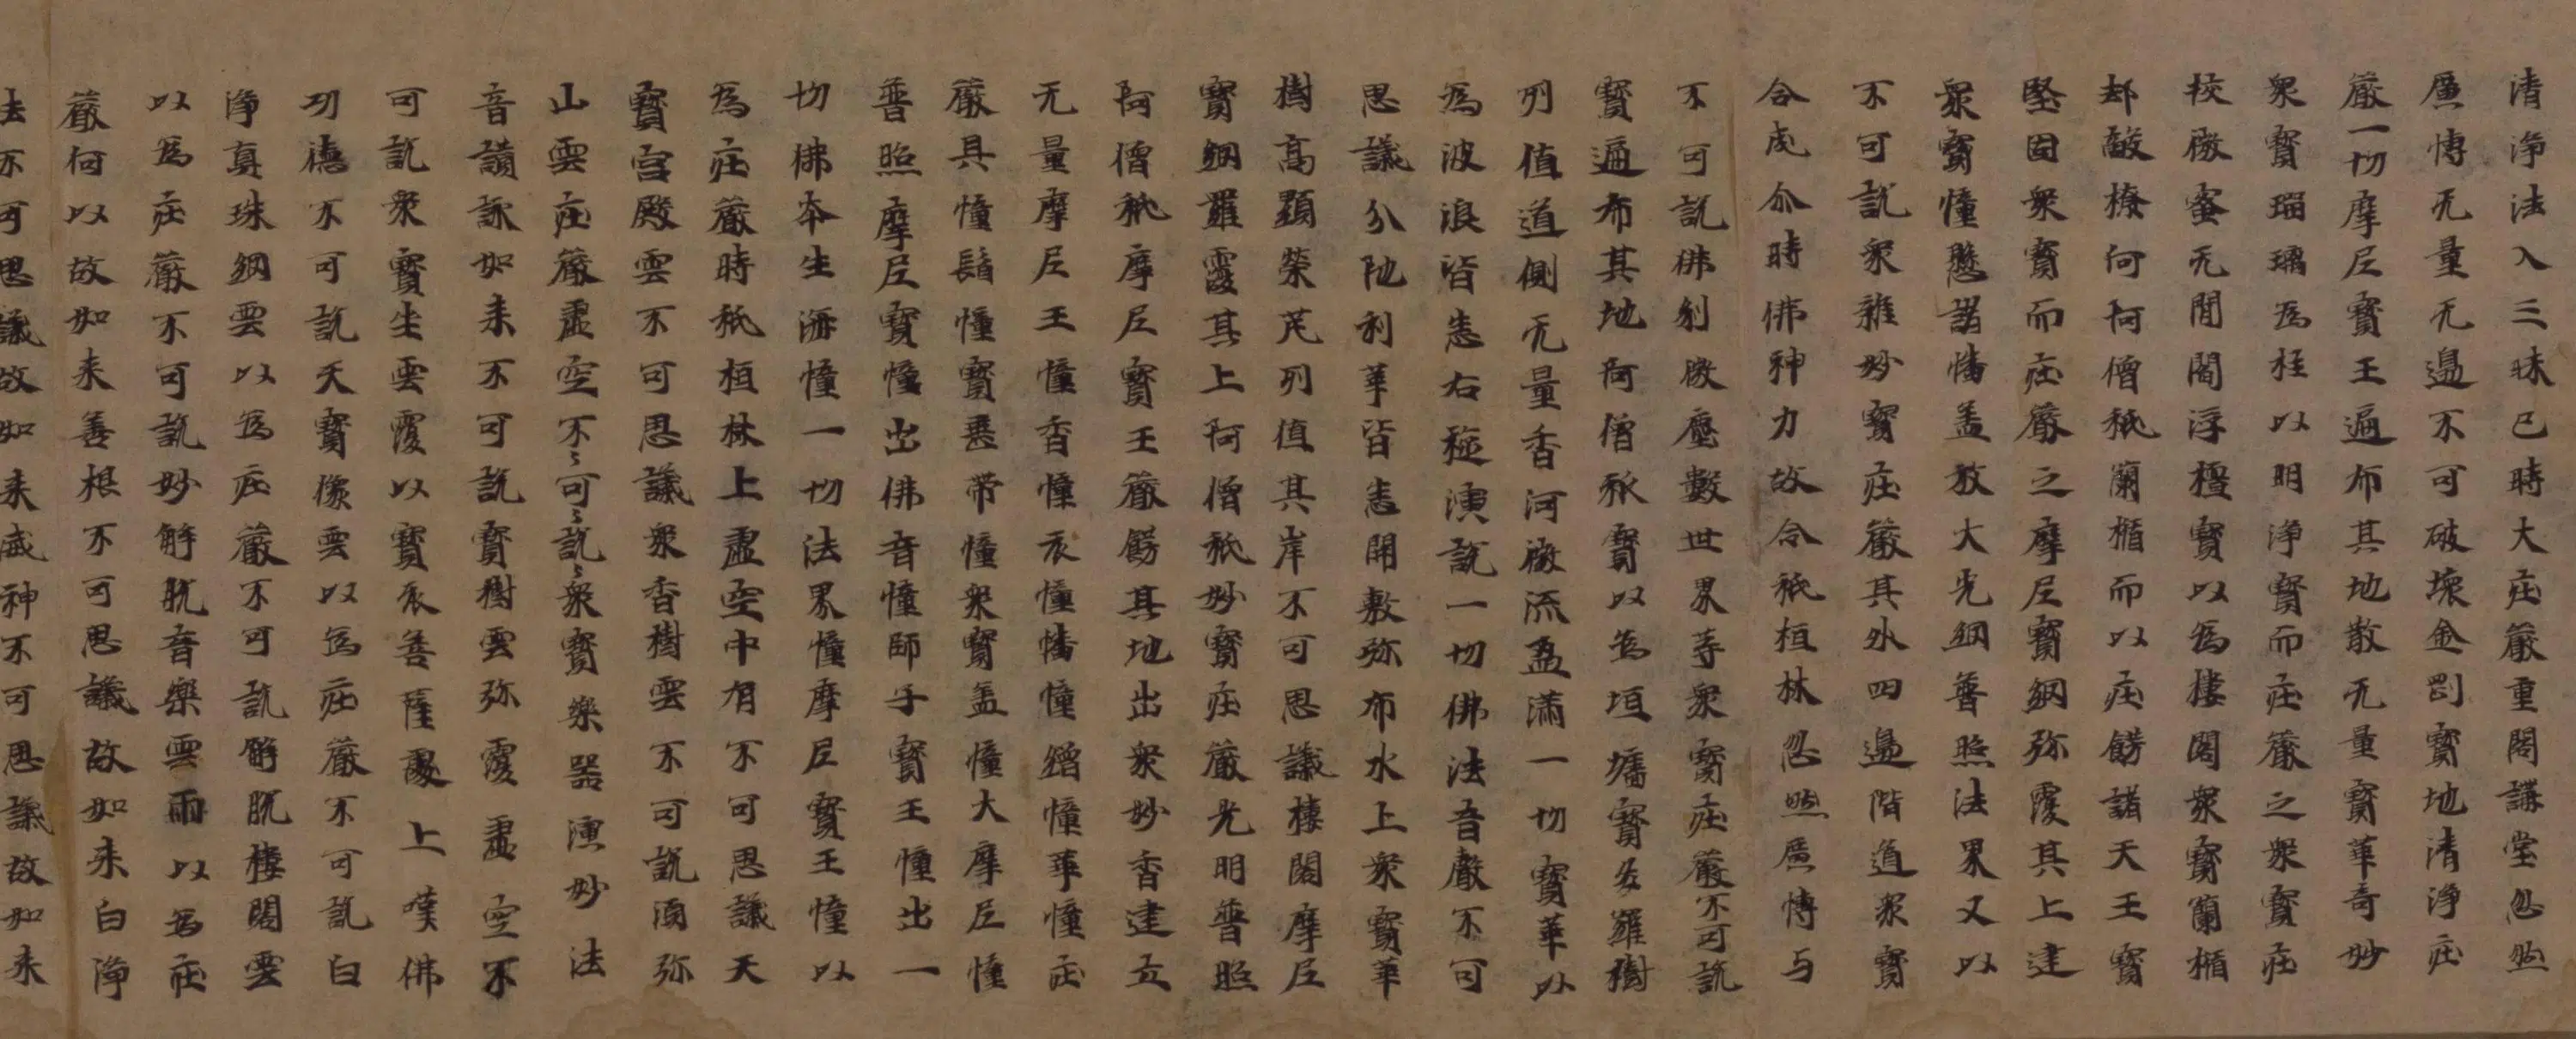 清淨法入三昧已時大庄嚴重閣講堂忽然
廣博无量无邊不可破壞金罰寶地清淨庄
嚴一切摩尼寶王遍布其地散无量寶華奇妙
衆寶瑠璃為柱以明淨寶而庄嚴之衆寶庄
挍微蜜无間閻浮檀寶以為樓閣衆寶蘭楯
却敵橑何阿僧祇蘭楯而以庄餝諸天王寶
堅固衆寶而庄嚴之摩尼寶網弥覆其上建
衆寶幢懸諸幡盖放大光網普照法界又以
不可説衆雜妙寶庄嚴其外四邊階道衆寶
合成尒時佛神力故令祇桓林忽然廣博与
不可説佛刹微塵數世界等衆寶庄嚴不可説
寶遍布其地阿僧祇寶以為垣墻寶多羅樹
列值道側无量香河微流盈滿一切寶華以
為波浪皆悉右㨖演説一切佛法音聲不可
思議分陁利華皆悉開敷弥布水上衆寶華
樹高顯榮茂列值其岸不可思議樓閣摩尼
寶網羅覆其上阿僧祇妙寶庄嚴光明普照
阿僧祇摩尼寶王嚴餝其地出衆妙香建立
无量摩尼王幢香幢衣幢幡幢繒幢華幢庄
嚴具幢鬘幢寶垂帶幢衆寶盖幢大摩尼幢
普照摩尼寶幢出佛音幢師子寶王幢出一
切佛本生海幢一切法界幢摩尼寶王幢以
為庄嚴時祇桓林上虛空中有不可思議天
寶宮殿雲不可思議衆香樹雲不可説湏弥
山雲庄嚴虛空不〻可〻説〻衆寶樂器演妙法
音讃詠如来不可説寶樹雲弥覆虛空不
可説衆寶坐雲覆以寶衣善薩處上嘆佛
功德不可説天寶像雲以為庄嚴不可説白
淨真珠網雲以為庄嚴不可説解脱樓閣雲
以為庄嚴不可説妙解脱音樂雲雨以為庄
嚴何以故如来善根不可思議故如来白淨
法不可思議故如来威神不可思議故如来